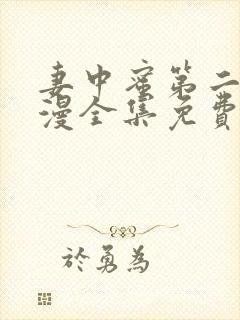 妻中蜜第二
漫全集免費
於勇為